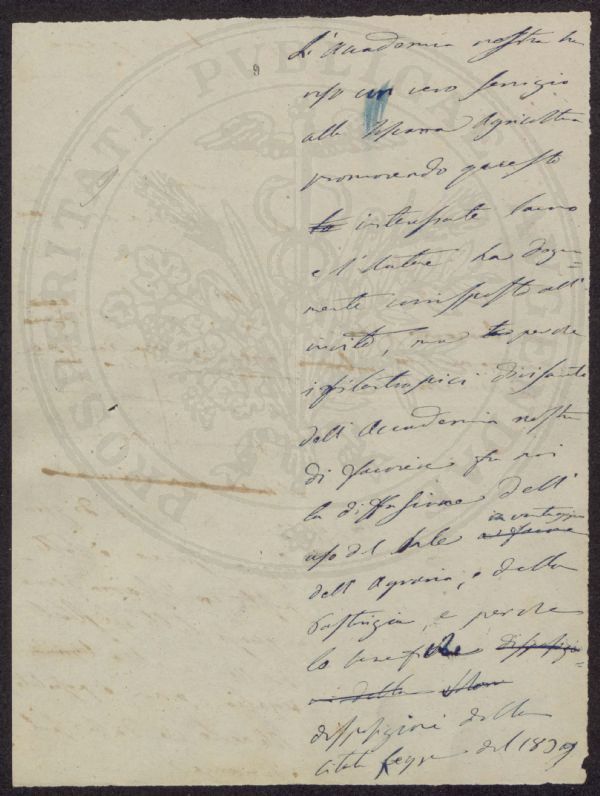 9
L'Accademia nostra ha
reso un vero servigio
alla Toscana Agricoltura
promovendo questo
interessante lavoro
e l'Autore ha degna-
mente corrisposto all'
invito, ma perche
i filantropici
dell'Accademia nostra
di favorire fra noi
la diffusione dell'
uso del sale in vantaggio
dell'Agraria, e della
Pastorizia, e perche
le benefiche
disposizioni della
citata Legge del 1839
PROSPERITATI PUBLICAE